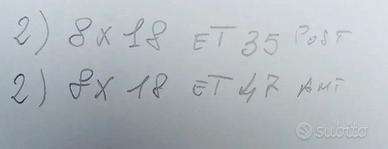 2) 8 x 18 ET 35 POST
2) 8 x 18 ET 47 ANT
subito